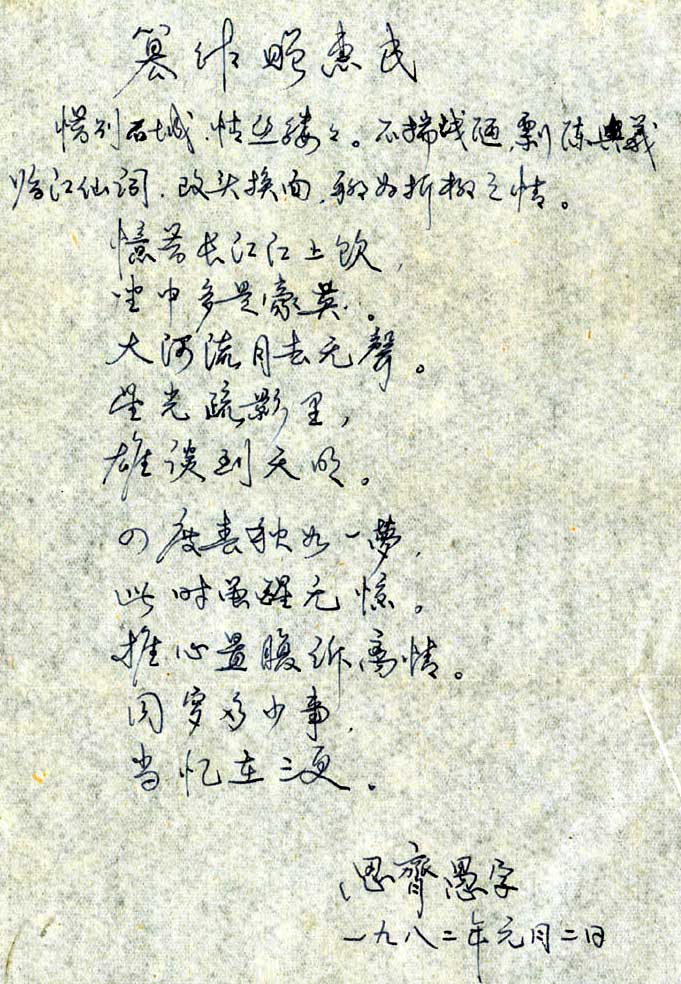 篡作赠惠民
惜别石城，情丝缕々。不揣浅陋，剽陈與義
临江仙词，改头换面，聊如折柳之情。
憶昔长江江上饮，
坐中多是豪英。
大河流月去无聲。
星光疏影里，
雄谈到天明。
四度春秋如一夢，
此时虽醒无惊。
推心置腹诉离情。
同窗多少事，
当忆在三更。
思齊愚字
一九八二年元月二日